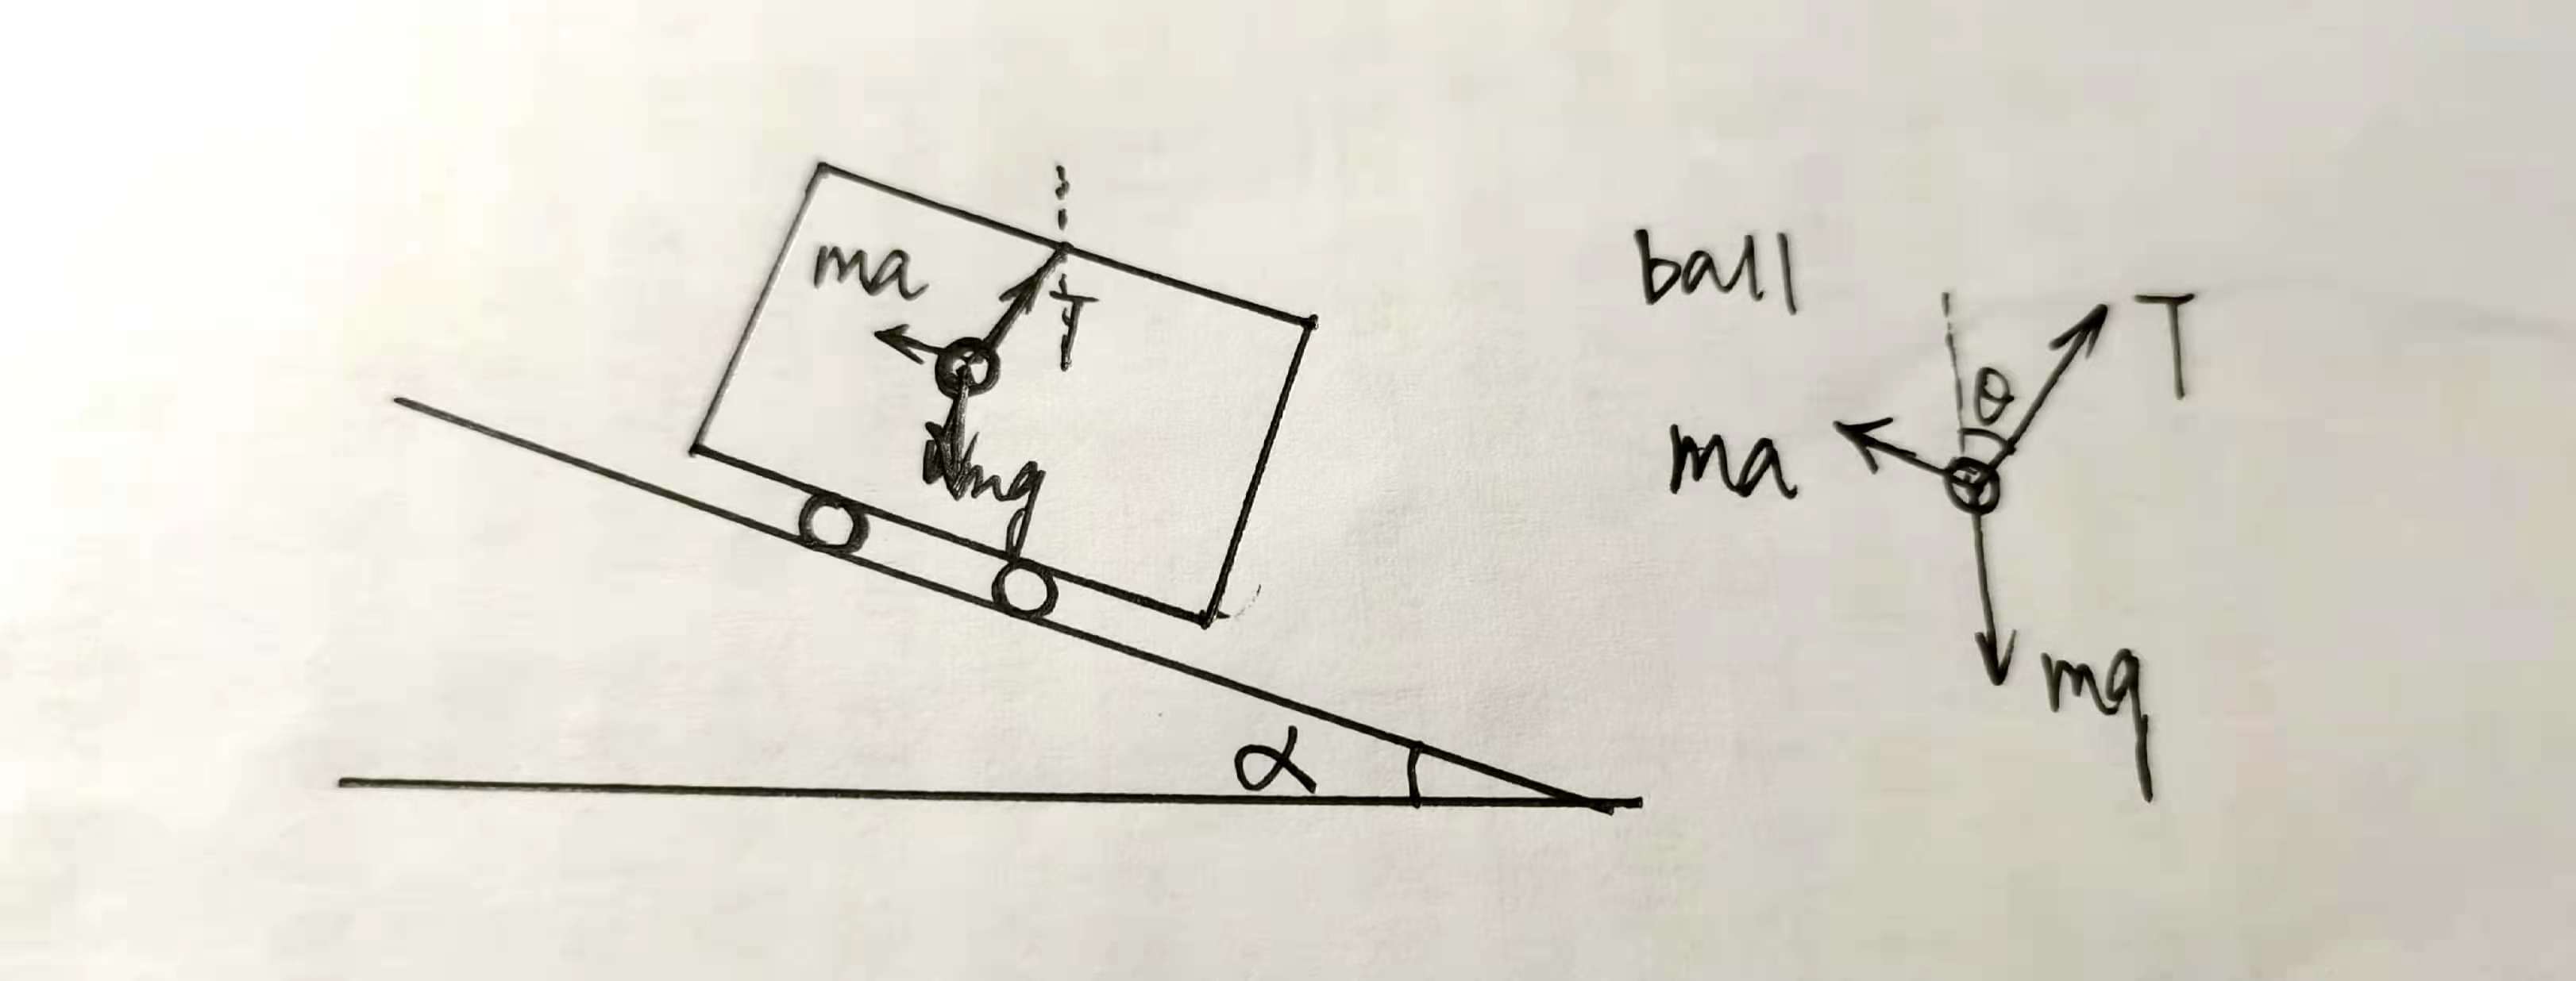 ma
T
mg
α
ball
θ
T
ma
mg